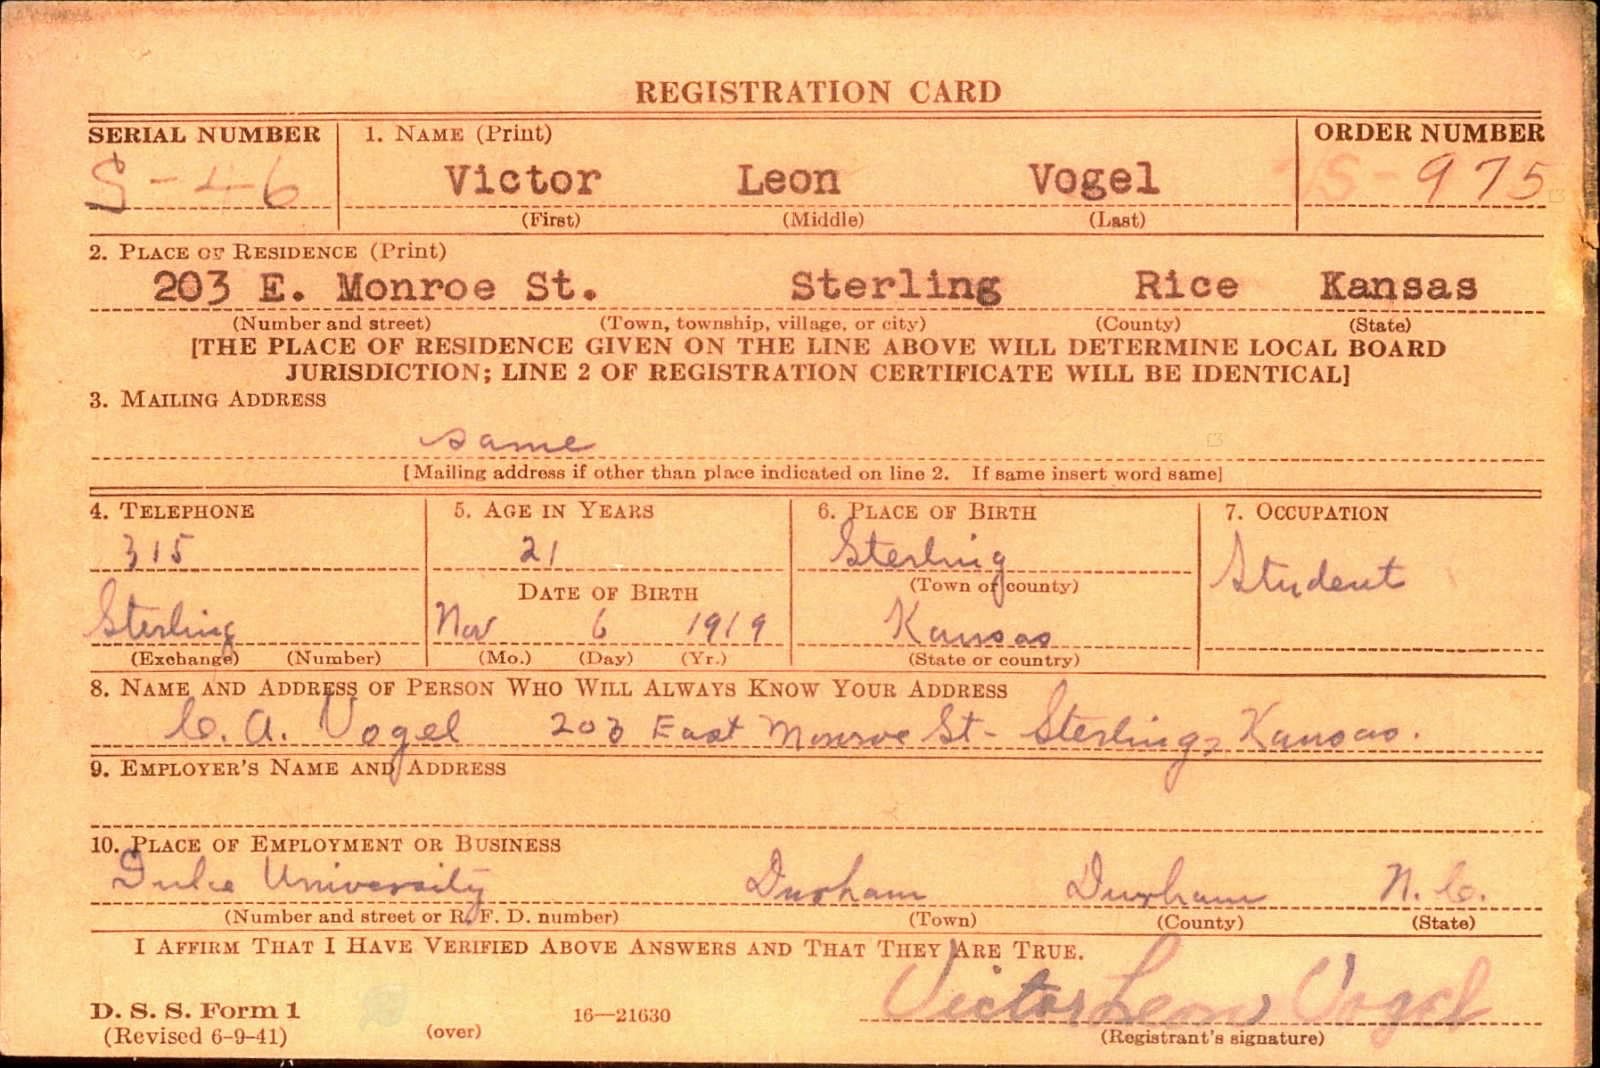 REGISTRATION CARD
SERIAL NUMBER 1. NAME (Print) ORDER NUMBER
S-46 Victor Leon Vogel S-975
(First) (Middle) (Last)
2. PLACE OF RESIDENCE (Print)
203 E. Monroe St. Sterling Rice Kansas
(Number and street) (Town, township, village, or city) (County) (State)
[THE PLACE OF RESIDENCE GIVEN ON THE LINE ABOVE WILL DETERMINE LOCAL BOARD
JURISDICTION; LINE 2 OF REGISTRATION CERTIFICATE WILL BE IDENTICAL]
3. MAILING ADDRESS
same
[Mailing address if other than place indicated on line 2. If same insert word same]
4. TELEPHONE 5. AGE IN YEARS 6. PLACE OF BIRTH 7. OCCUPATION
315 21 Sterling Student
DATE OF BIRTH (Town or county)
Sterling Nov 6 1919 Kansas
(Exchange) (Number) (Mo.) (Day) (Yr.) (State or country)
8. NAME AND ADDRESS OF PERSON WHO WILL ALWAYS KNOW YOUR ADDRESS
C. A. Vogel 203 East Monroe St- Sterling, Kansas.
9. EMPLOYER'S NAME AND ADDRESS
10. PLACE OF EMPLOYMENT OR BUSINESS
Duke University Durham Durham N. C.
(Number and street or R. F. D. number) (Town) (County) (State)
I AFFIRM THAT I HAVE VERIFIED ABOVE ANSWERS AND THAT THEY ARE TRUE.
Victor Leon Vogel
D. S. S. Form 1
(Revised 6-9-41) (over) 16—21630 (Registrant's signature)